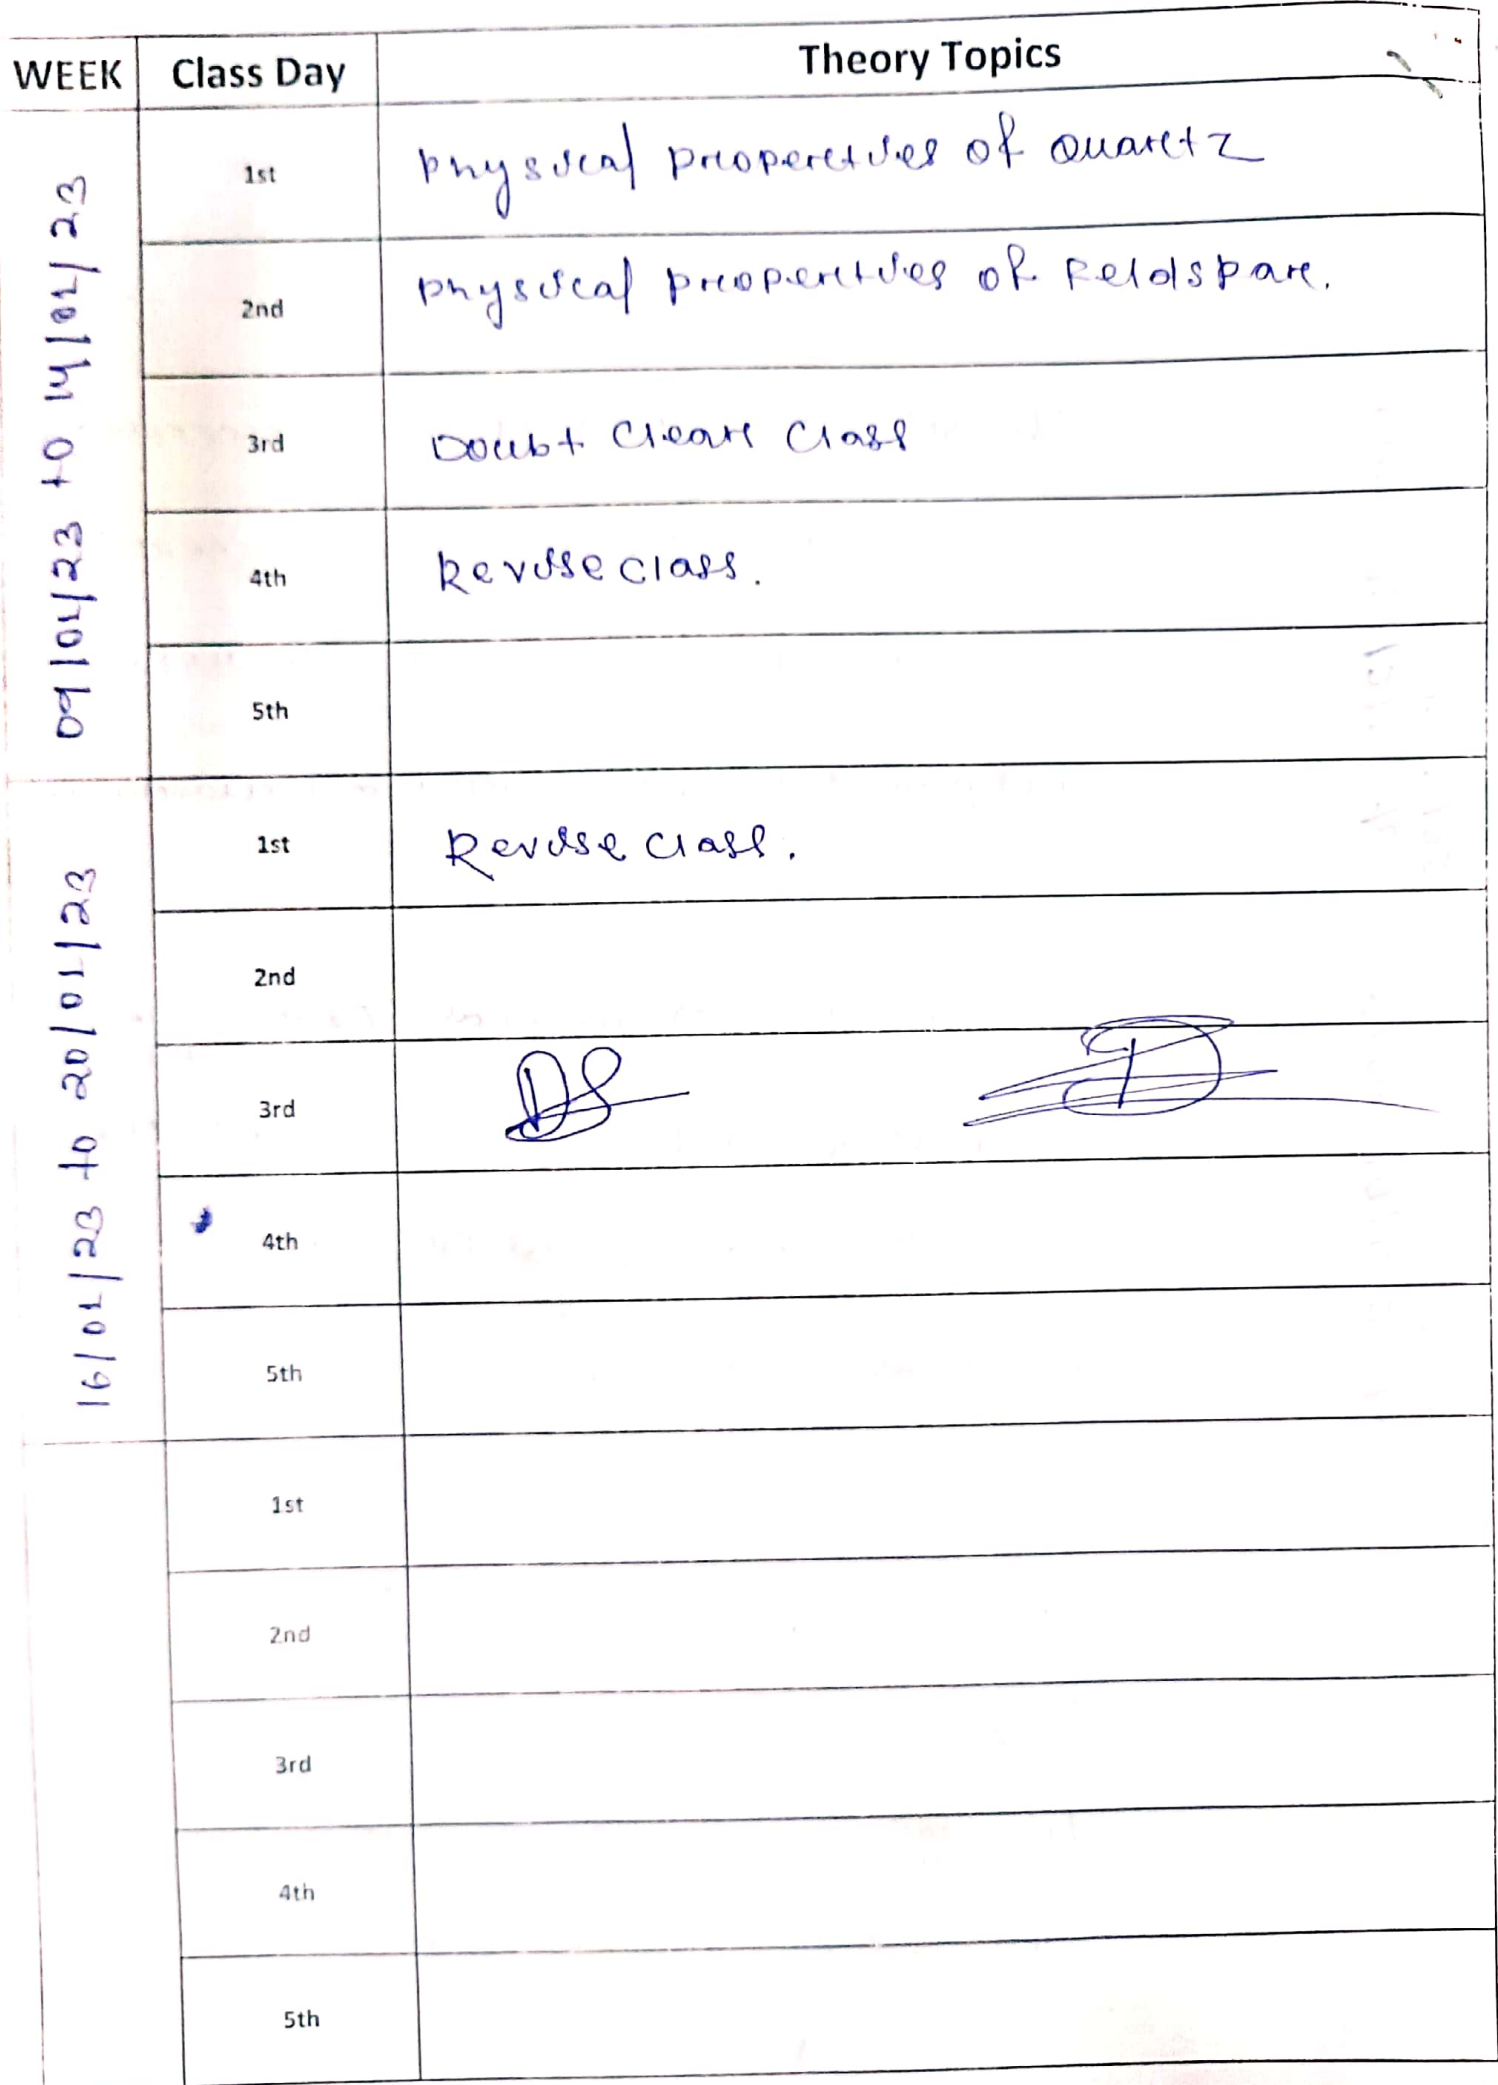 WEEK Class Day Theory Topics
09/01/23 to 14/01/23
1st Physical properties of Quartz
2nd Physical properties of Feldspar.
3rd Doubt Clear Class
4th Revise class.
5th
16/01/23 to 20/01/23
1st Revise Class.
2nd
3rd
4th
5th
1st
2nd
3rd
4th
5th